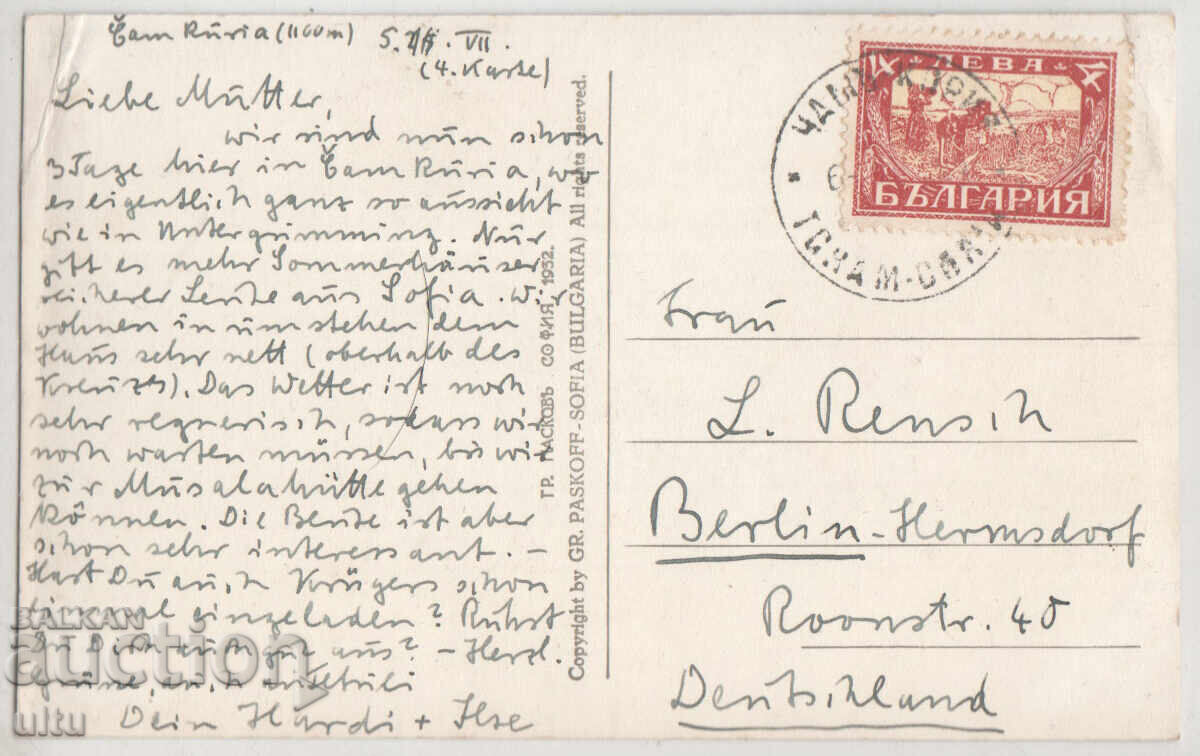 Čam Kuria (1100m) 5. VII.
(4. Karte)
Liebe Mutter,
wir sind nun schon
3 Tage hier in Čam Kuria, wo
es eigentlich ganz so aussieht
wie in Untergrimming. Nur
gibt es mehr Sommerhäuser
reicherer Leute aus Sofia. Wir
wohnen in umstehendem
Haus sehr nett (oberhalb des
Kreuzes). Das Wetter ist noch
sehr regnerisch, sodass wir
noch warten müssen, bis wir
zur Musalahütte gehen
können. Die Beute ist aber
schon sehr interessant. –
Hast Du auch Krügers schon
einmal eingeladen? Ruhst
Du Dich auch gut aus? – Herzl.
Grüsse, auch
Dein Hardi + Ilse
ГР. ПАСКОВЪ СОФИЯ 1932.
Copyright by GR. PASKOFF-SOFIA (BULGARIA) All rights reserved.
4 ЛЕВА 4
БЪЛГАРИЯ
TCHAM-
Frau
L. Rensch
Berlin-Hermsdorf
Roonstr. 40
Deutschland
BALKAN
auction
ultu